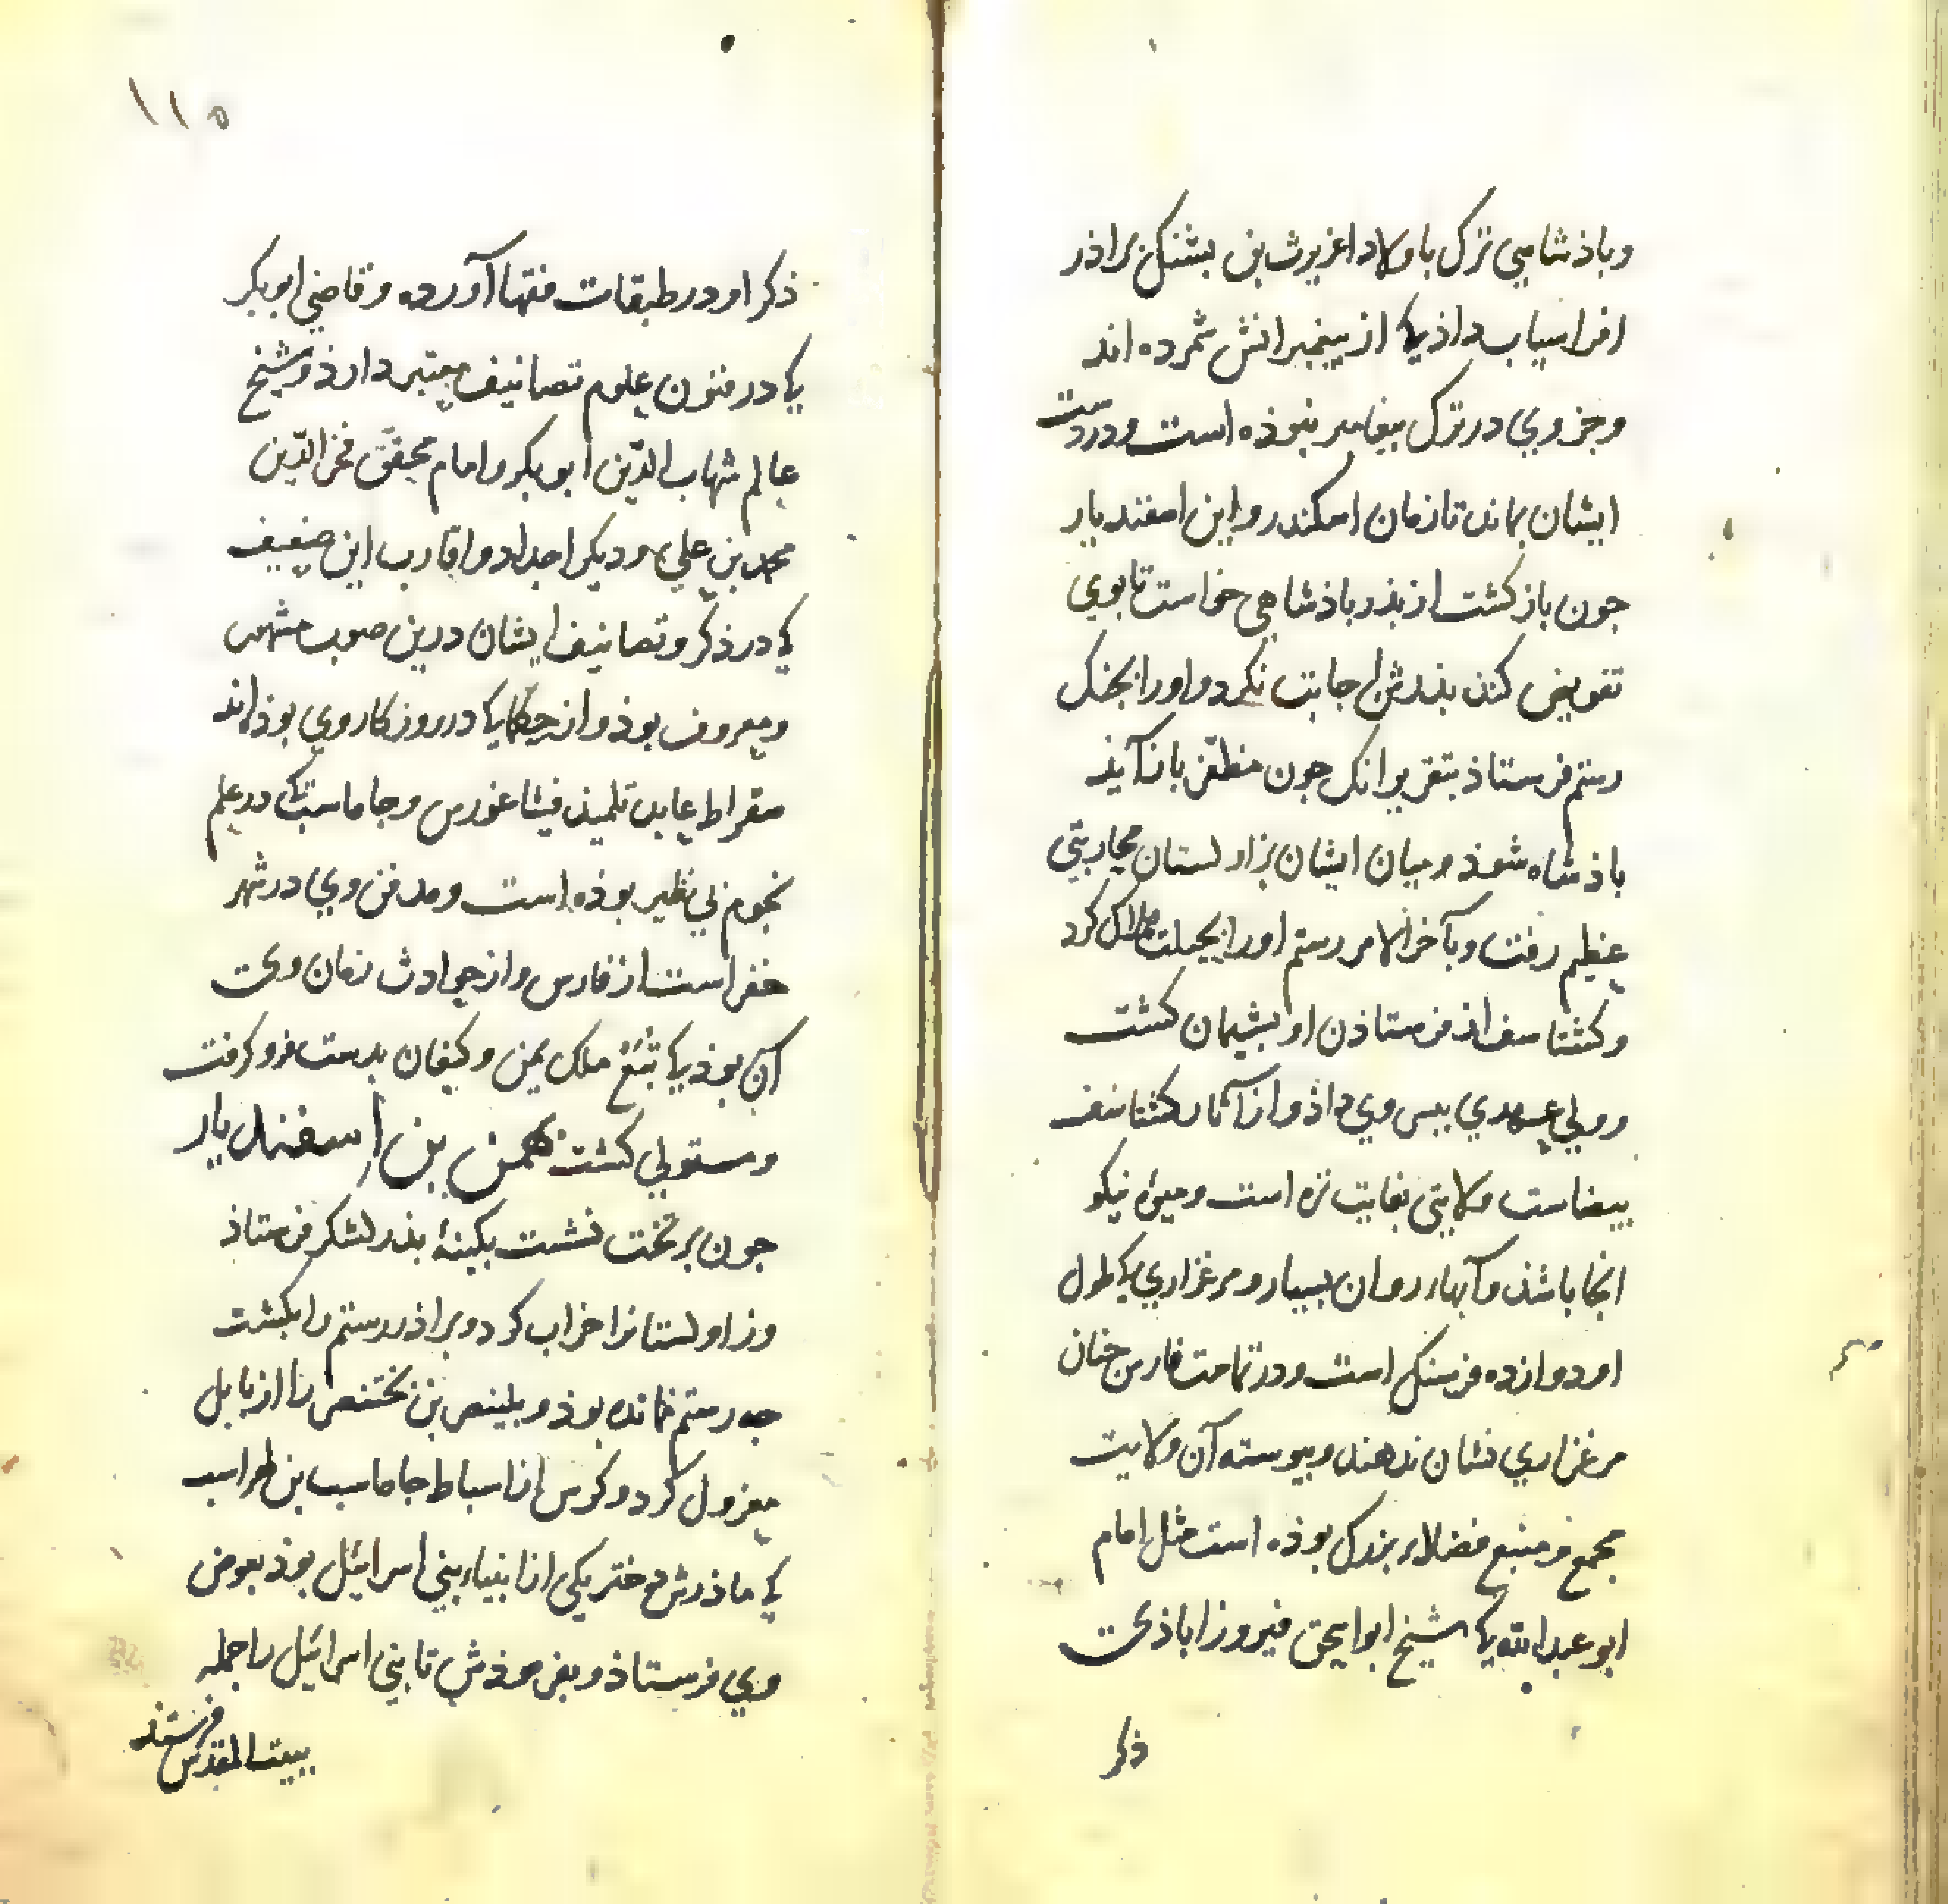 وباذشاهي ترك باولاد اغريرث بن بشنك براذر
افراسياب داذ كه از پيغمبرانش شمرده اند
وجز وي در ترك پيغامبر نبوذه است ودر دست
ايشان بماند تا زمان اسكندر واين اسفنديار
جون باز كشت از بذر باذشاهي خواست تا بوي
تفويض كند بذرش اجابت نكرد واورا بجنك
رستم فرستاذ بتقرير انك جون مظفر باز آيذ
باذشاه شوذ وميان ايشان بزاولستان محاربتي
عظيم رفت وبآخر الامر رستم اورا بحيلت هلاك كرد
وكشتاسف از فرستاذن او بشيمان كشت
وولي عهدي ببسر وي داذ واز آثار كشتاسف
بيضاست ولايتي بغايت نزه است وميوه نيكو
انجا باشذ وآبهاء روان بسيار ومرغزاري كه طول
او دوازده فرسنك است ودر تمامت فارس جنان
مرغزاري نشان ندهند وبيوسته آن ولايت
مجمع ومنبع فضلاء بزرك بوذه است مثل امام
ابو عبد الله كه شيخ ابو اسحق فيروزاباذي
ذكر
١١٥
ذكر او در طبقات فقها آورده وقاضي ابو بكر
كه در فنون علوم تصانيف معتبر دارذ وشيخ
عالم شهاب الدّين ابو بكر وامام محقق فخر الدّين
محمد بن علي وديكر اجداد واقارب اين ضعيف
كه در ذكر وتصانيف ايشان درين صوب مشهور
ومعروف بوذ واز حكما كه در روزكار وي بوذه اند
سقراط عابد تلميذ فيثاغورس وجاماسب كه در علم
نجوم بي نظير بوذه است ومدفن وي در شهر
خفر است از فارس واز حوادث زمان وي
آن بوذ كه تبّع ملك يمن وكيفان بدست فرو كرفت
ومستولي كشت بهمن بن اسفنديار
جون بر تخت نشست بكينهٔ بذر لشكر فرستاذ
وزاولستانرا خراب كرد وبراذر رستم را بكشت
جه رستم نمانده بوذ وبلينصر بن بختنصر را از بابل
معزول كرد وكرس از اسباط جاماسب بن لهراسب
كه ماذرش دختر يكي از انبياء بني اسرائيل بوذ بعوض
وي فرستاذ وبفرموذش تا بني اسرائيل را جمله
ببيت المقدس فرستذ